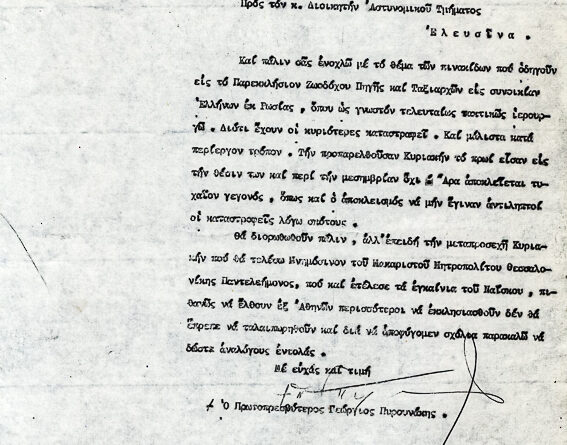 Πρός τόν κ. Διοικητήν Ἀστυνομικοῦ Τμήματος
Ἐλευσῖνα .
Καί πάλιν σᾶς ἐνοχλῶ μέ τό θέμα τῶν πινακίδων πού ὁδηγοῦν
εἰς τό Παρεκκλήσιον Ζωοδόχου Πηγῆς καί Ταξιαρχῶν εἰς συνοικίαν
Ἑλλήνων ἐκ Ρωσίας , ὅπου ὡς γνωστόν τελευταίως τακτικῶς ἱερουρ-
γῶ . Διότι ἔχουν οἱ κυριότερες καταστραφεῖ . Καί μάλιστα κατά
περίεργον τρόπον . Τήν προπαρελθοῦσαν Κυριακήν τό πρωί εἶσαν εἰς
τήν θέσιν των καί περί τήν μεσημβρίαν ὄχι Ἄρα ἀποκλείεται τυ-
χαῖον γεγονός , ὅπως καί ὁ ἀποκλεισμός νά μήν ἔγιναν ἀντιληπτοί
οἱ καταστροφεῖς λόγω σκότους .
Θά διορθωθοῦν πάλιν , ἀλλ'ἐπειδή τήν μεταπροσεχῆ Κυρια-
κήν πού θά τελέσω Μνημόσυνον τοῦ Μακαριστοῦ Μητροπολίτου Θεσσαλο-
νίκης Παντελεήμονος, πού καί ἐτέλεσε τά ἐγκαίνια τοῦ Ναΐσκου , πι-
θανῶς νά ἔλθουν ἐξ Ἀθηνῶν περισσότεροι νά ἐκκλησιασθοῦν δέν θά
ἔπρεπε νά ταλαιπωρηθοῦν καί διά νά ἀποφύγομεν σχόλια παρακαλῶ νά
δώστε ἀναλόγους ἐντολάς .
Μέ εὐχάς καί τιμή
Ὁ Πρωτοπρεσβύτερος Γεώργιος Πυρουνάκης .